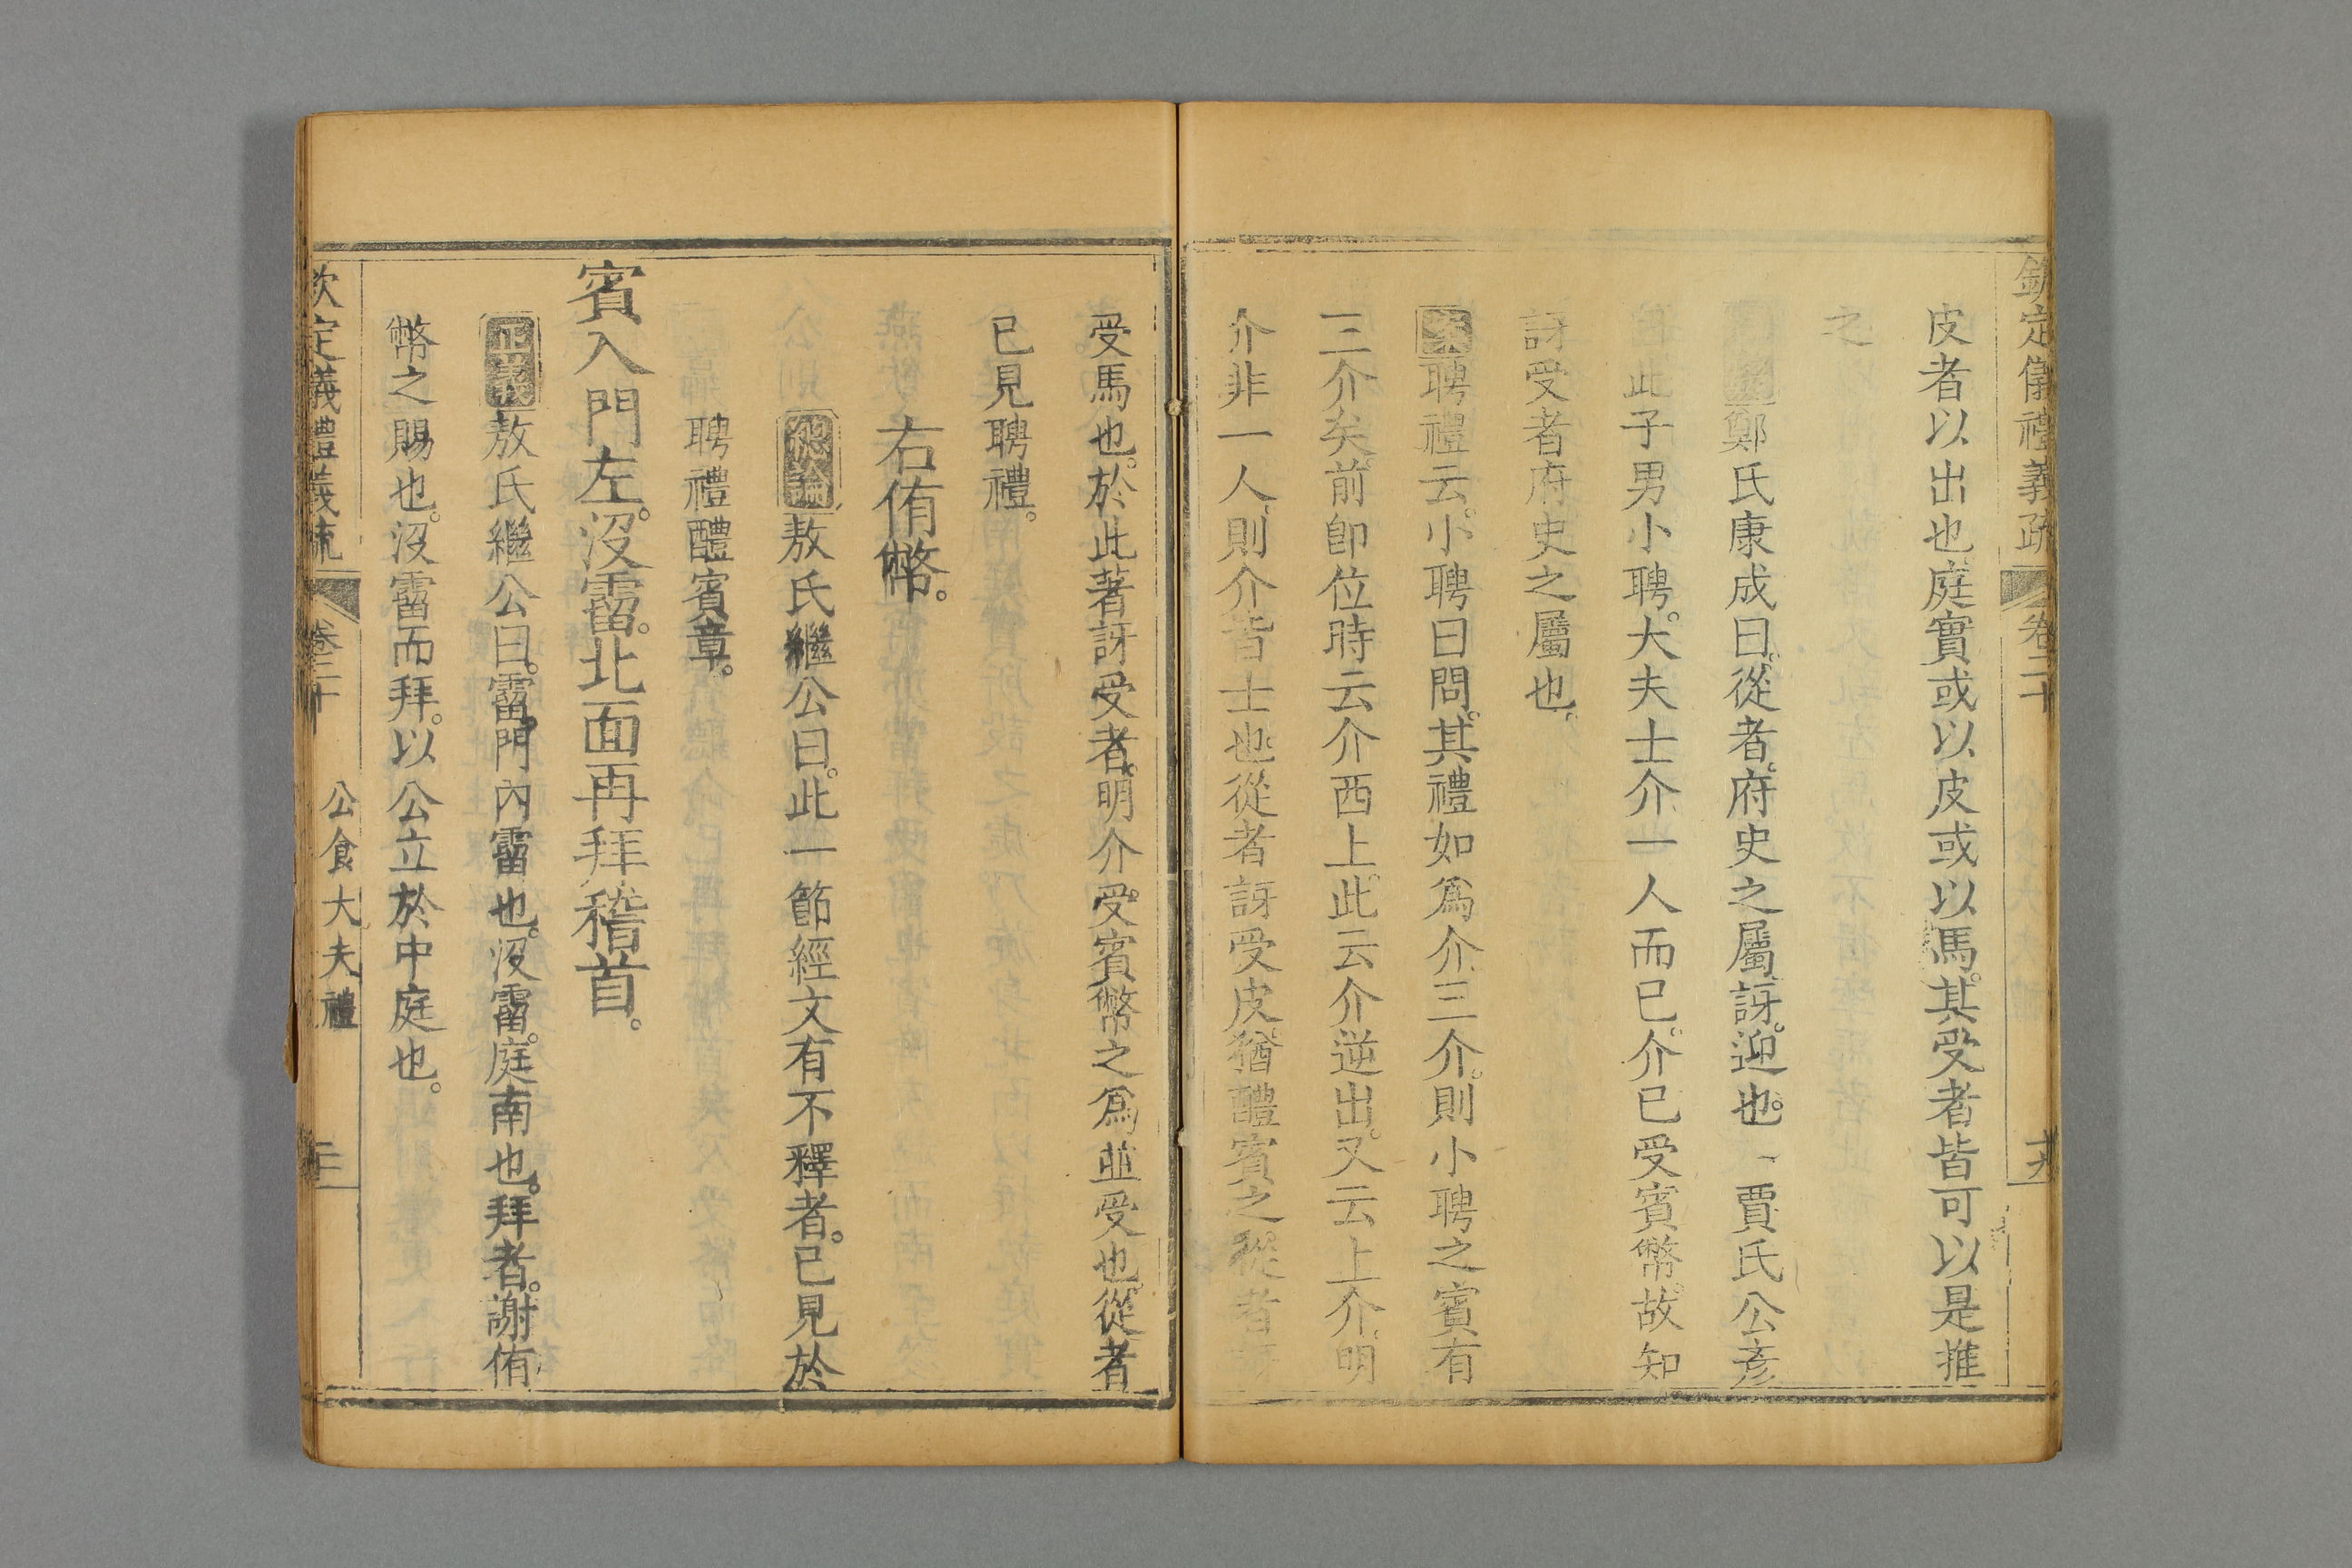 欽定儀禮義疏 卷二十 十九
皮者以出也庭實或以皮或以馬其受者皆可以是推
之
鄭氏康成曰從者府史之屬訝迎也 賈氏公彥
此子男小聘大夫士介一人而已介已受賓幣故知
訝受者府史之屬也
案聘禮云小聘曰問其禮如爲介三介則小聘之賓有
三介矣前卽位時云介西上此云介逆出又云上介明
介非一人則介皆士也從者訝受皮猶醴賓之從者
受馬也於此著訝受者明介受賓幣之爲並受也從者
已見聘禮
右侑幣
總論敖氏繼公曰此一節經文有不釋者已見於
聘禮醴賓章
賓入門左沒霤北面再拜稽首
正義敖氏繼公曰霤門內霤也沒霤庭南也拜者謝侑
幣之賜也沒霤而拜以公立於中庭也
欽定儀禮義疏 卷二十 公食大夫禮 二十